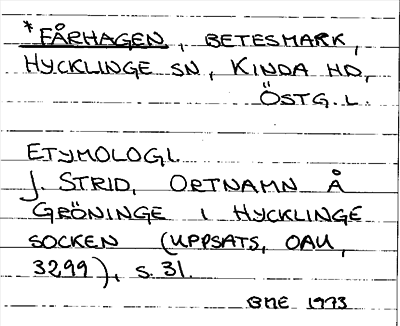 *FÅRHAGEN, BETESMARK,
HYCKLINGE SN, KINDA HD,
ÖSTG. L.
ETYMOLOGI.
J. STRID, ORTNAMN Å
GRÖNINGE I HYCKLINGE
SOCKEN (UPPSATS, OAU,
3299), S. 31.
BME 1973